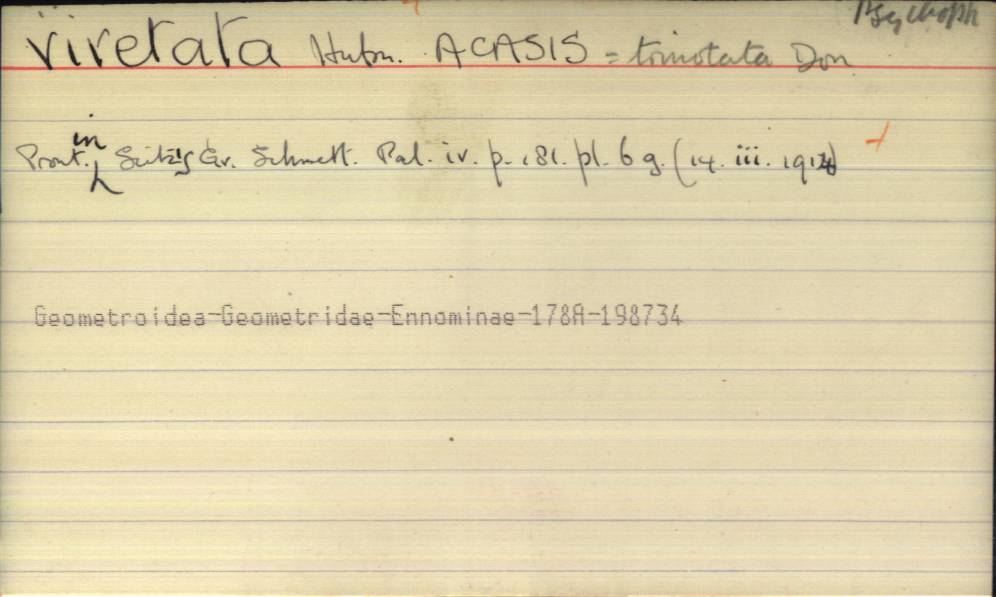 Psychoph
viretata Hubn. ACASIS = trinotata Don
Prout. in Seitz's Gr. Schmett. Pal. iv. p. 181. pl. 6 g. (14. iii. 1914)
Geometroidea-Geometridae-Ennominae-178A-198734